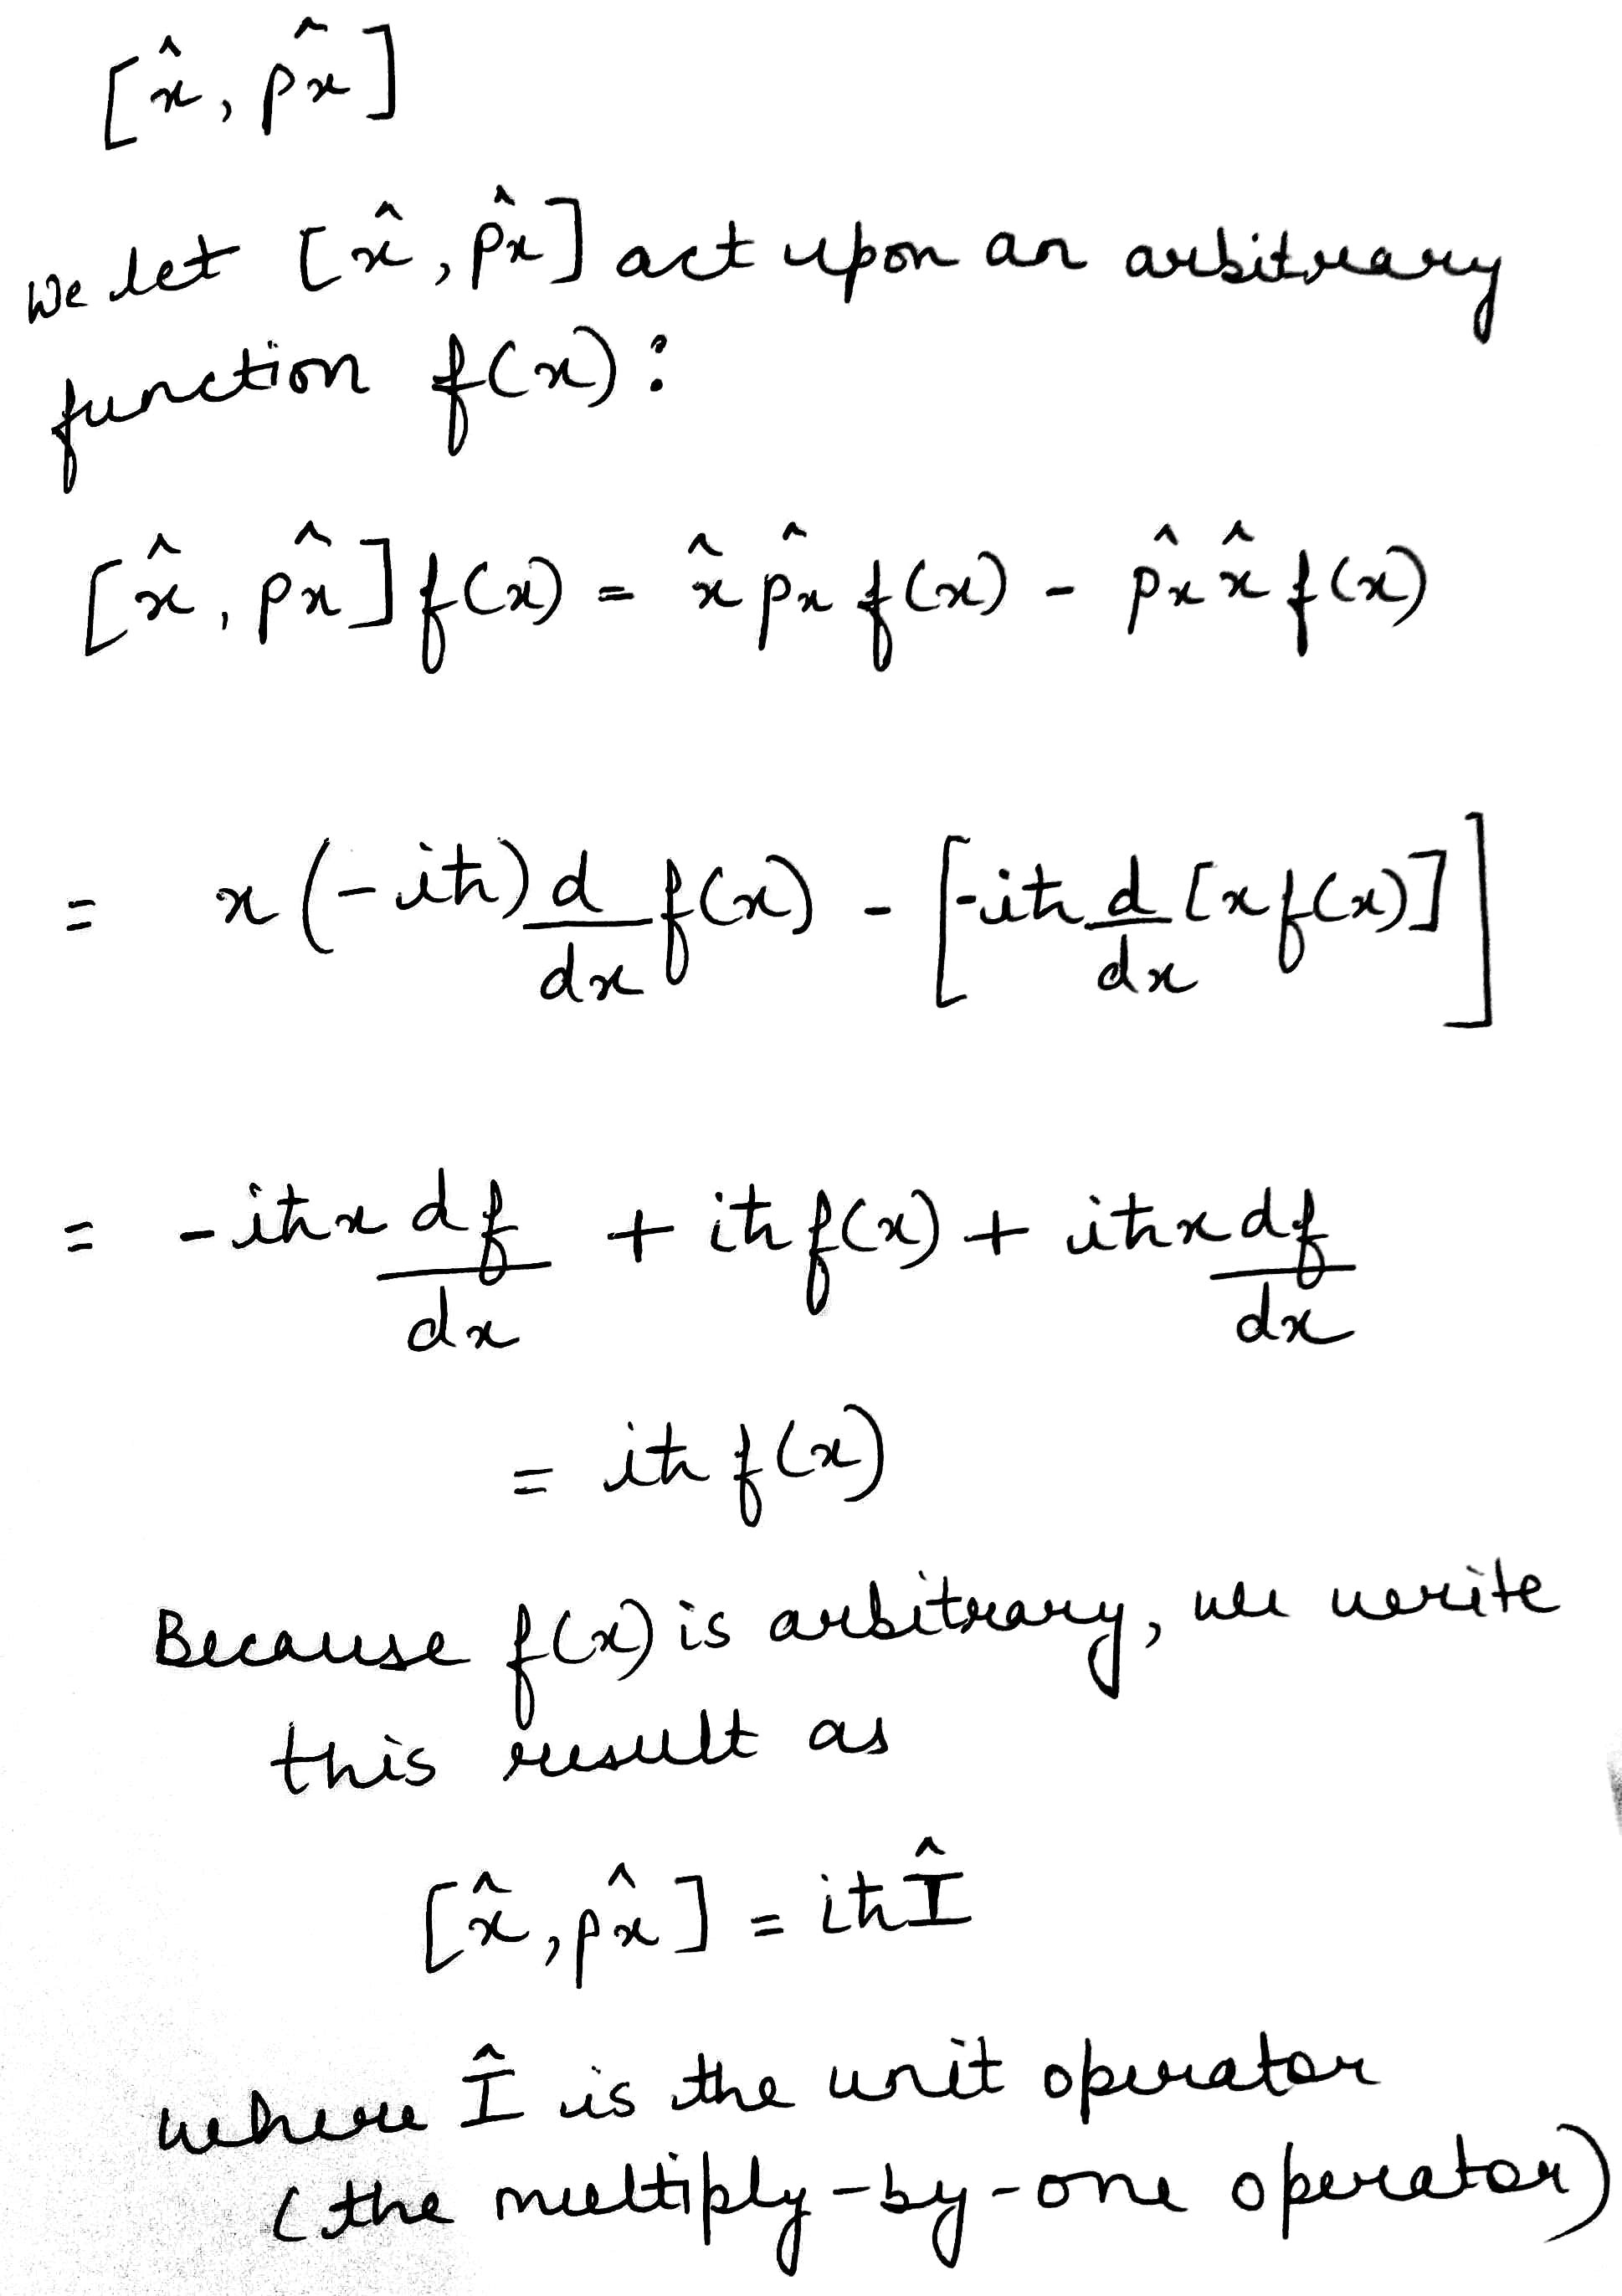 [x̂, p̂x]
We let [x̂, p̂x] act upon an arbitrary
function f(x):
[x̂, p̂x] f(x) = x̂ p̂x f(x) - p̂x x̂ f(x)
= x (-iħ) d/dx f(x) - [-iħ d/dx [x f(x)]]
= -iħx df/dx + iħ f(x) + iħx df/dx
= iħ f(x)
Because f(x) is arbitrary, we write
this result as
[x̂, p̂x] = iħ Î
where Î is the unit operator
(the multiply-by-one operator)